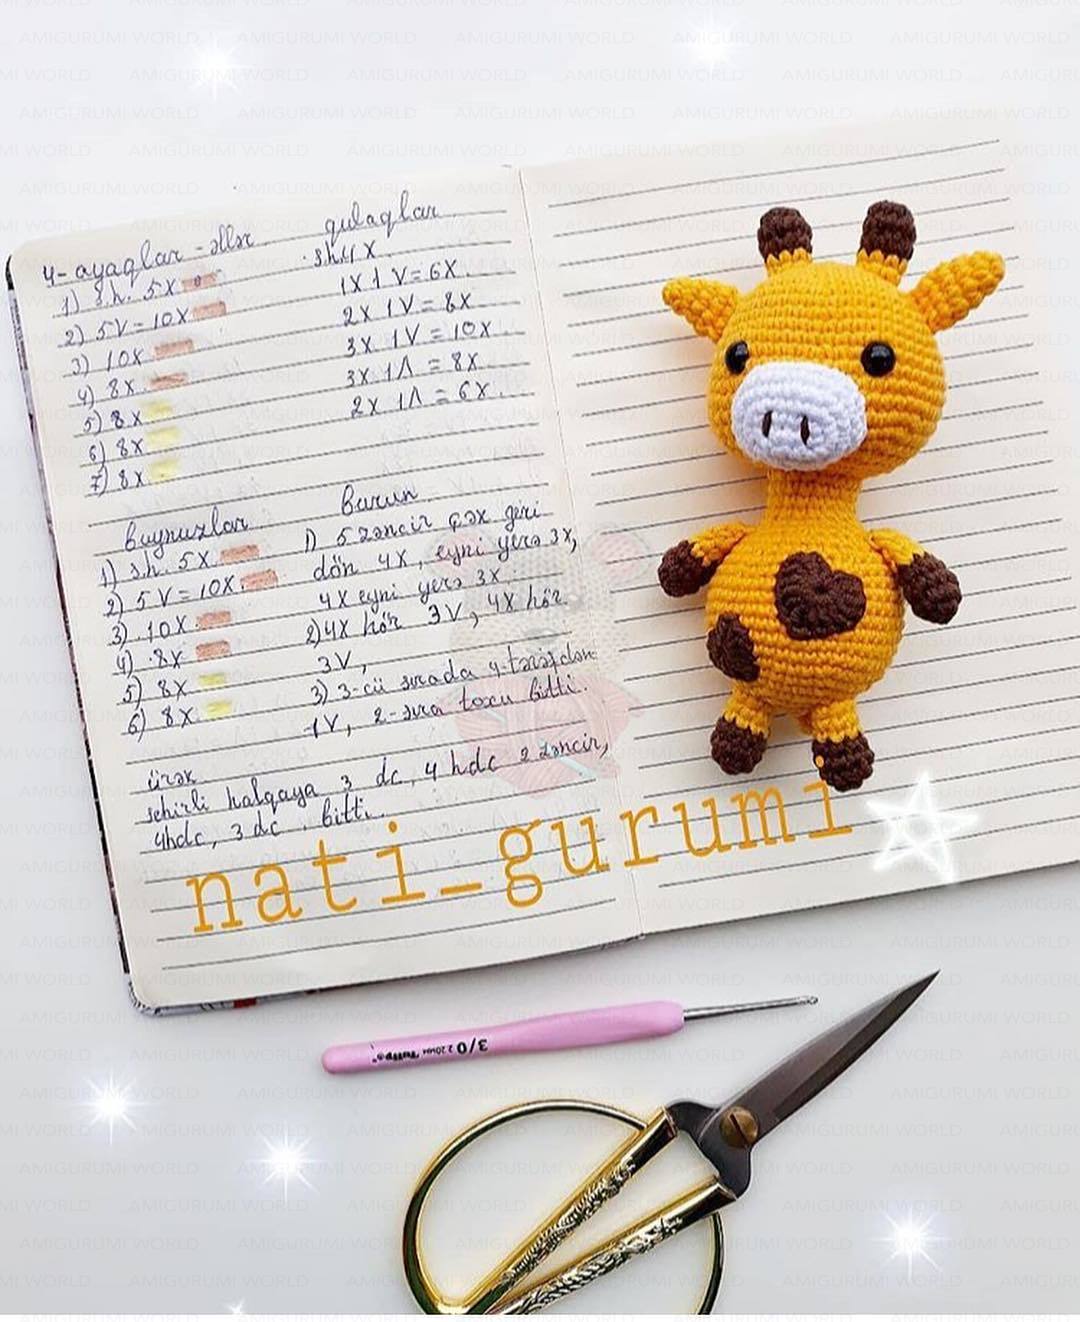 4-ayaqlar-əllər
1) s.h. 5X
2) 5V=10X
3) 10X
4) 8X
5) 8X
6) 8X
7) 8X
qulaqlar
sh4X
1X1V=6X
2X1V=8X
3X1V=10X
3X1Λ=8X
2X1Λ=6X.
buynuzlar
1) s.h. 5X.
2) 5V=10X.
3) 10X
4) 8X
5) 8X
6) 8X
burun
1) 5 zəncir çək geri
dön 4X, eyni yerə 3X,
4X eyni yerə 3X
2) 4X hör 3V, 4X hör
3V,
3) 3-cü sırada 4-tərəfdən
1V, 2-sıra toxu bitti.
ürək
sehirli halqaya 3 dc, 4 hdc 2 zəncir,
4hdc, 3 dc, bitti.
nati_gurumi
3/0 2.20mm Tulip
AMIGURUMI WORLD